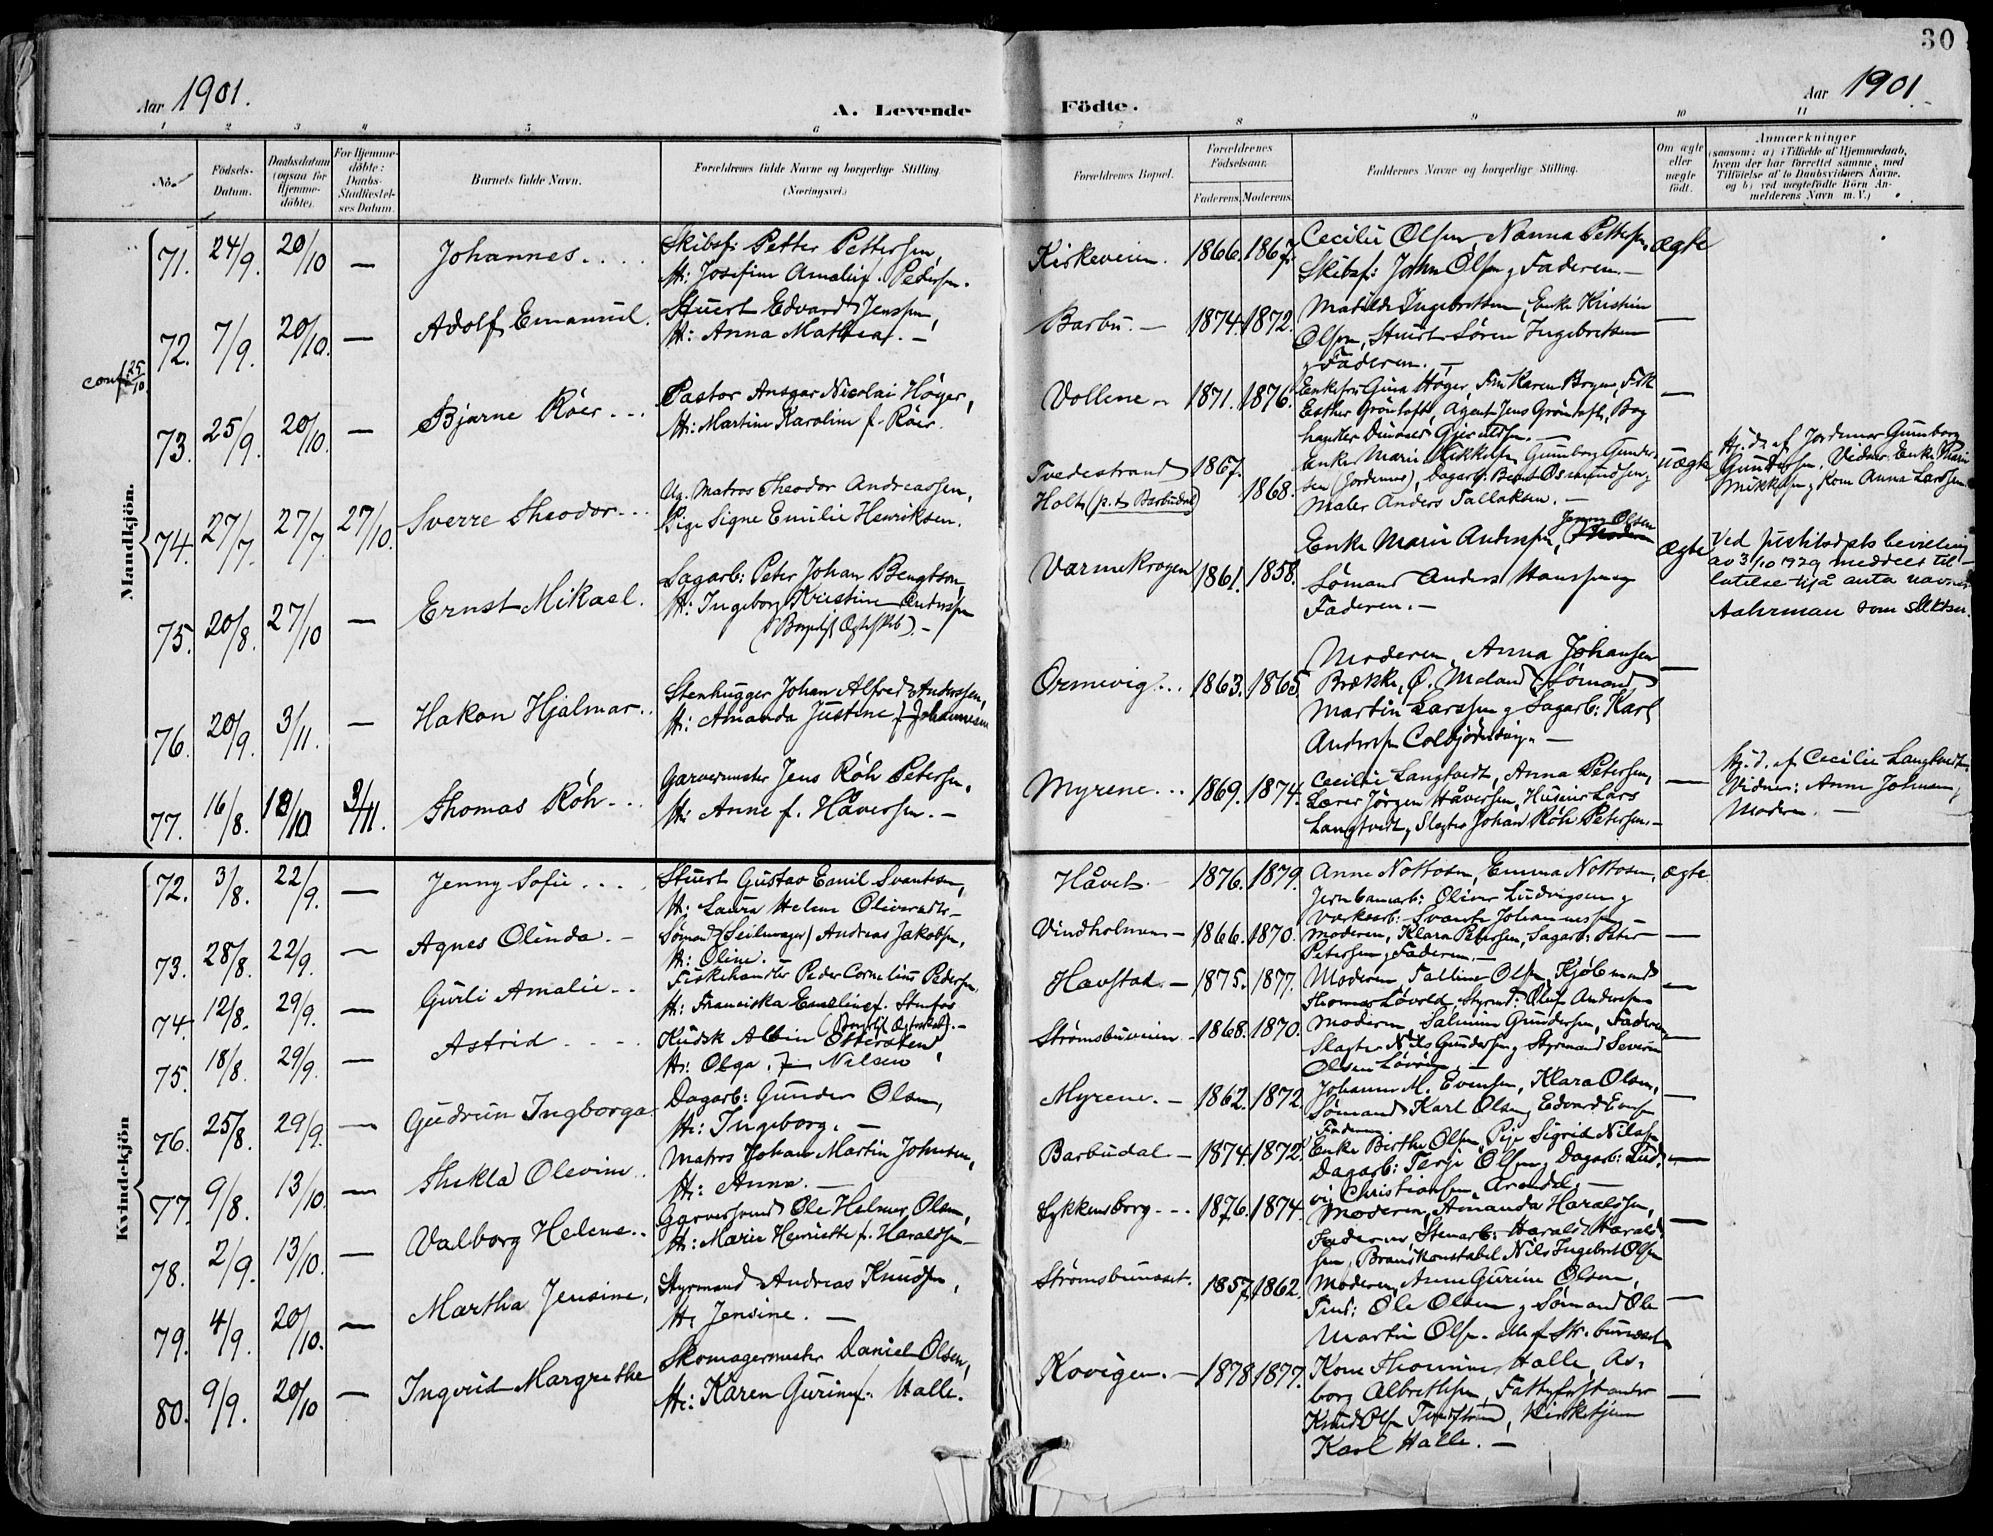 30
Aar 1901.
A. Levende
Födte.
Aar 1901.
1 2 3 4 5 6 7 8 9 10 11
No.
Födsels-
Datum.
Daabsdatum
(ogsaa for
Hjemme-
döbte).
For Hjemme-
döbte:
Daabs-
Stadfæstel-
ses Datum.
Barnets fulde Navn.
Forældrenes fulde Navne og borgerlige Stilling
(Næringsvei.)
Forældrenes Bopæl.
Forældrenes
Födselsaar.
Faderens. Moderens.
Faddernes Navne og borgerlige Stilling.
Om ægte
eller
uægte
født.
Anmærkninger
(saasom: a) i Tilfælde af Hjemmedaab,
hvem der har forrettet samme, med
Tilföielse af to Daabsvidners Navne,
og b) ved uægtefödte Börn An-
melderens Navn m. V.)
Mandkjön.
71. 24/9. 20/10 — Johannes....
Skibsf: Petter Pettersen,
H: Josefine Amalie f. Pedersen.
Kirkeveien. 1866. 1867.
Cecilie Olsen, Nanna Pettersen,
Skibsf: John Olsen & Faderen. —
Ægte
72. 7/9. 20/10. — Adolf Emanuel.
Stuert Edvard Jenssen,
H: Anna Mathea. —
Barbu. — 1874. 1872.
Matilde Ingebretsen, Enke Kristine
Olsen, Stuert Sören Ingebretsen
& Faderen. —
—
conf. 25/10.
73. 25/9. 20/10. — Bjarne Röer...
Pastor Ansgar Nicolai Höyer,
H: Martine Karoline f. Röer.
Vollene 1871. 1876.
Enkefru Gina Höyer, Fru Karen Bryn, Frk
Esther Gröntoft, Agent Jens Gröntoft, Bog
handler
—
74. 27/7. 27/7. 27/10. Sverre Theodor...
Ug. Matros Theodor Andreassen,
Pige Signe Emilie Henriksen.
Tvedestrand 1867.
Holt (p.t. Barbudal) 1868.
Enke Marie Mikkelsen, Gunborg Gunder-
sen (Jordmor), Dagarb. Bernt Osmundsen &
Maler Anders Tallaksen. —
uægte
Hj.d. af Jordemor Gunborg
Gundersen, Vidner Enke Marie
Mikkelsen & Kone Anna Larssen.
75. 20/8. 27/10 — Ernst Mikael.
Sagarb: Peter Johan Bengtson,
H: Ingeborg Kristine Anderssen
(Borgerligt Ægteskab). —
Varmekrogen 1861. 1858.
Enke Marie Anderssen, Jenny Olsen
Sömand Anders Hanssen &
Faderen. —
Ægte
Ved justitsdpts bevilling
av 3/10 1929 meddelt til-
latelse til å anta navnet
Aahrman som slektsn.
76. 20/9. 3/11. — Hakon Hjalmar..
Stenhugger Johan Alfred Anderssen,
H: Amanda Justine f. Johannesen
Ormevig... 1863. 1865.
Moderen, Anna Johansen
Brække, Ö. Meland, Sömand
Martin Larssen & Sagarb: Karl
Anderssen Colbjörnsvig. —
—
77. 16/8. 18/10 3/11. Thomas Röh...
Garvermester Jens Röh Petersen,
H: Anne f. Håversen. —
Myrene... 1869. 1874.
Cecilie Langtvedt, Anna Petersen,
Lærer Jörgen Håversen, Huseier Lars
Langtvedt, Slagter Johan Röh Petersen. —
—
Hj.d. af Cecilie Langtvedt
Vidner: Anne Johnsen &
Moderen. —
Kvindekjön
72. 3/8. 22/9. — Jenny Sofie....
Stuert Gustav Emil Svantesen,
H: Laura Helene
Håvet. — 1876. 1879.
Anne Nottosen, Emma Nottosen,
Jernbanearb: Oliver Ludvigsen &
Værksarb: Svante Johannessen —
ægte.
73. 28/8. 22/9. — Agnes Olinda. —
Sömand (Seilmager) Andreas Jakobsen,
H: Oline. —
Vindholmen — 1866. 1870.
Moderen, Klara Petersen, Sagarb: Peter
Petersen & Faderen. —
—
74. 12/8. 29/9. — Gurli Amalie..
Fiskehandler Peder Cornelius Pedersen,
H: Franciska Emelie f. Stenfors
(Borgerligt Ægteskab). —
Havstad. — 1875. 1877.
Moderen, Talline Olsen, Kjöbmand
Thomas Lövold, Styrmd: Oluf Andersen
—
75. 18/8. 29/9. — Astrid....
Kudsk Albin Ottersten,
H: Olga f. Nilsen
Strömsbuveien 1868. 1870.
Moderen, Salmine Gundersen, Faderen,
Slagter Nils Gundersen & Styrmand Severin
Olsen
—
76. 25/8. 29/9. — Gudrun Ingborga
Dagarb: Gunder Olsen,
H: Ingeborg. —
Myrene. — 1862. 1872.
Johanne M. Evensen, Klara Olsen,
Sömand Karl Olsen, Edvard Evensen
Faderen.
—
77. 9/8. 13/10. — Thekla Olevine..
Matros Johan Martin Johnsen,
H: Anna. —
Barbudal. — 1874. 1872.
Enke Berthe Olsen, Pige Sigrid Nilssen,
Dagarb: Terje Olsen, Dagarb: Lud-
vig Christiansen, Arendal. —
—
78. 2/9. 13/10. — Valborg Helene..
Garversvend Ole Helmer Olsen,
H: Marie Henriette f. Haraldsen —
Lykkensborg... 1876. 1874.
Moderen, Amanda Haraldsen,
Faderen, Stenarb: Harald Harald-
sen, Brandkonstabel Nils Ingebret Olsen
—
79. 4/9. 20/10. — Martha Jensine,
Styrmand Andreas Knudsen,
H: Jensine. —
Strömsbunæset. 1857. 1862.
Moderen, Anne Gurine Olsen,
Tmd: Ole Olsen & Sömand Ole
Martin Olsen. alle af Str. bunæset
—
80. 9/9. 20/10 — Ingvid Margrethe
Skomagermester Daniel Olsen,
H: Karen Gurine f. Halle.
Kovigen. — 1878 1877.
Kone Thomine Halle, As-
borg Albretsen,
Knud Olsen
Karl Halle. —
—